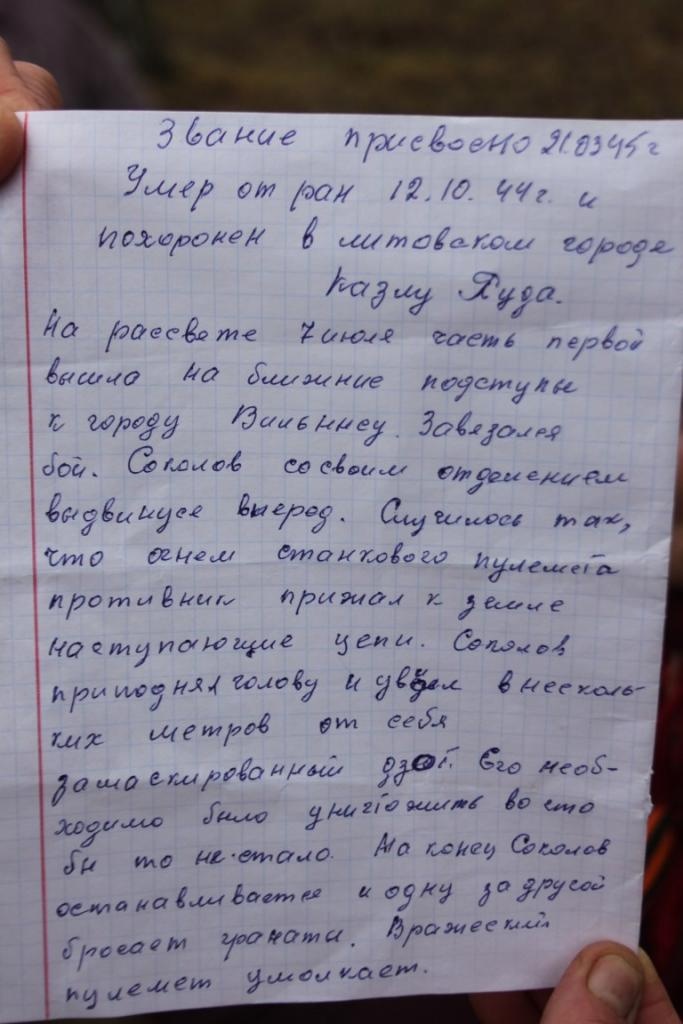 Звание присвоено 21.0345г
Умер от ран 12.10.44г. и
похоронен в литовском городе
Казлу Руда.
На рассвете 7 июля часть первой
вышла на ближние подступы
к городу Вильнюсу. Завязался
бой. Соколов со своим отделением
выдвинулся вперед. Случилось так,
что огнем станкового пулемета
противник прижал к земле
наступающие цепи. Соколов
приподнял голову и увидел в несколь-
ких метров от себя
замаскированный дзот. Его необ-
ходимо было уничтожить во сто
бы то не стало. На конец Соколов
останавливается и одну за другой
бросает гранаты. Вражеский
пулемет умолкает.